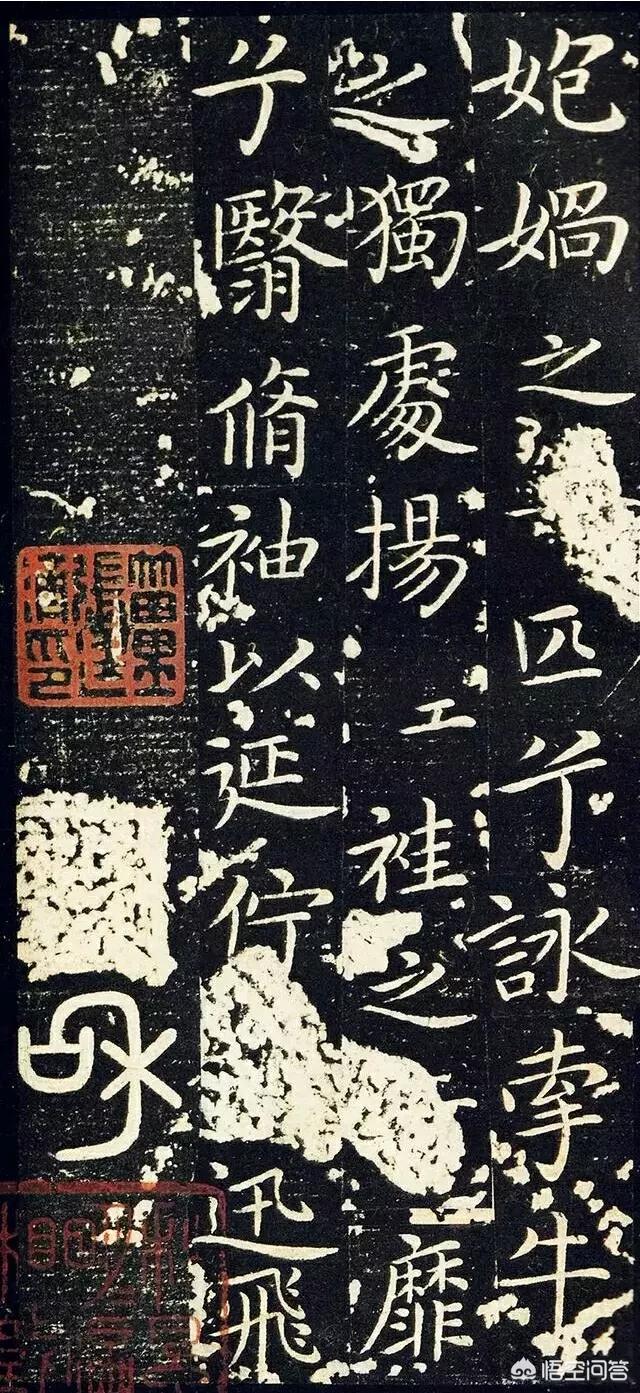 媧之匹兮詠牽牛
之獨處揚袿之靡
兮翳脩袖以延佇迅飛
悟空问答